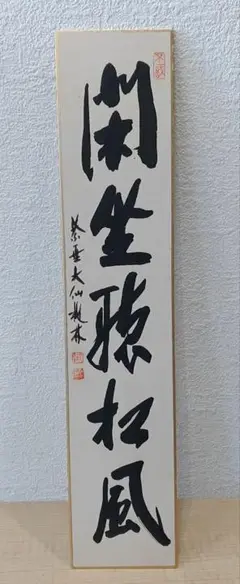 閑坐聴松風
紫野大仙